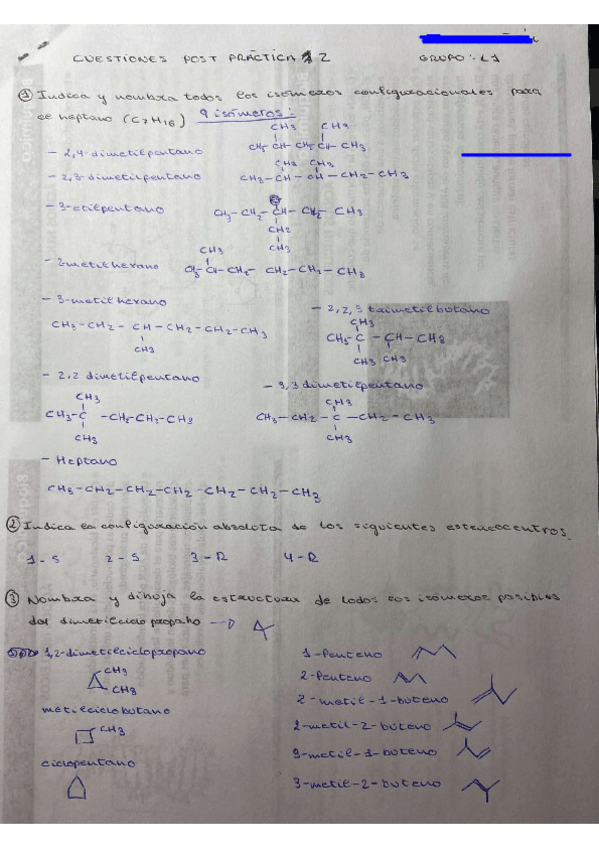 CUESTIONES POST PRÁCTICA 2
GRUPO: L1
① Indica y nombra todos los isómeros configuracionales para
el heptano (C7H16) 9 isómeros:
- 2,4-dimetilpentano
CH3 CH3
CH3-CH-CH2-CH-CH3
- 2,3-dimetilpentano
CH3 CH3
CH3-CH-CH-CH2-CH3
- 3-etilpentano
CH3-CH2-CH-CH2-CH3
CH2
CH3
- 2-metilhexano
CH3
CH3-CH-CH2-CH2-CH2-CH3
- 3-metilhexano
CH3-CH2-CH-CH2-CH2-CH3
CH3
- 2,2,3 trimetilbutano
CH3
CH3-C-CH-CH3
CH3 CH3
- 2,2 dimetilpentano
CH3
CH3-C-CH2-CH2-CH3
CH3
- 3,3 dimetilpentano
CH3
CH3-CH2-C-CH2-CH3
CH3
- Heptano
CH3-CH2-CH2-CH2-CH2-CH2-CH3
② Indica la configuración absoluta de los siguientes estereocentros.
1-S 2-S 3-R 4-R
③ Nombra y dibuja la estructura de todos los isómeros posibles
del dimetilciclopropano
1,2-dimetilciclopropano
CH3
CH3
metilciclobutano
CH3
ciclopentano
1-Penteno
2-Penteno
2-metil-1-buteno
2-metil-2-buteno
3-metil-1-buteno
3-metil-2-buteno